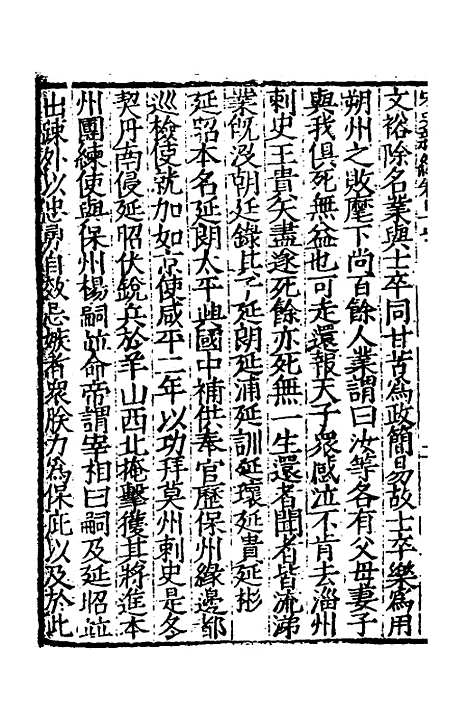 文裕除名業與士卒同甘苦為政簡易故士卒樂為用
朔州之敗麾下尚百餘人業謂曰汝等各有父母妻子
與我俱死無益也可走還報天子衆感泣不肯去淄州
刺史王貴矢盡遂死餘亦死無一生還者聞者皆流涕
業旣没朝廷錄其子延朗延浦延訓延瓌延貴延彬
延昭本名延朗太平興國中補供奉官歷保州緣邊都
巡檢使就加如京使咸平二年以功拜莫州刺史是冬
契丹南侵延昭伏銳兵於羊山西北掩擊獲其將進本
州團練使與保州楊嗣並命帝謂宰相曰嗣及延昭並
出踈外以忠勇自效忌嫉者衆朕力為保庇以及於此